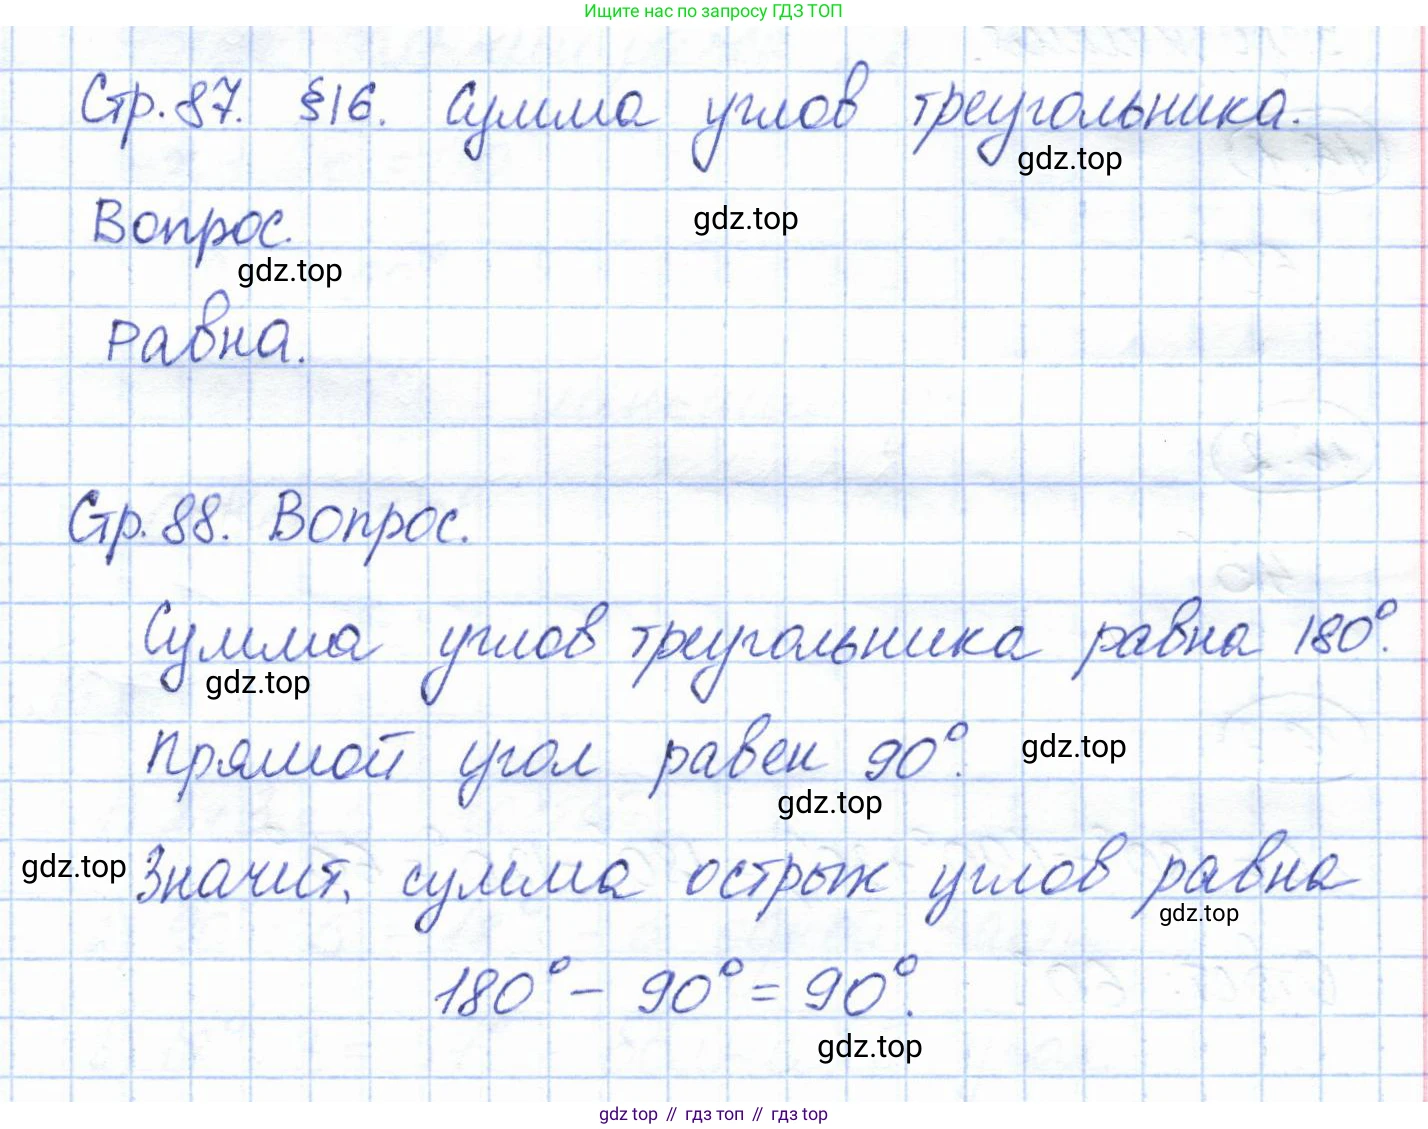 Ищите нас по запросу ГДЗ ТОП
Стр. 87. §16. Сумма углов треугольника.
gdz.top
Вопрос.
gdz.top
gdz.top
Равна.
Стр. 88. Вопрос.
Сумма углов треугольника равна 180°.
gdz.top
Прямой угол равен 90°.
gdz.top
gdz.top
gdz.top
Значит, сумма острых углов равна
gdz.top
180° - 90° = 90°.
gdz.top
gdz top // гдз топ // гдз top